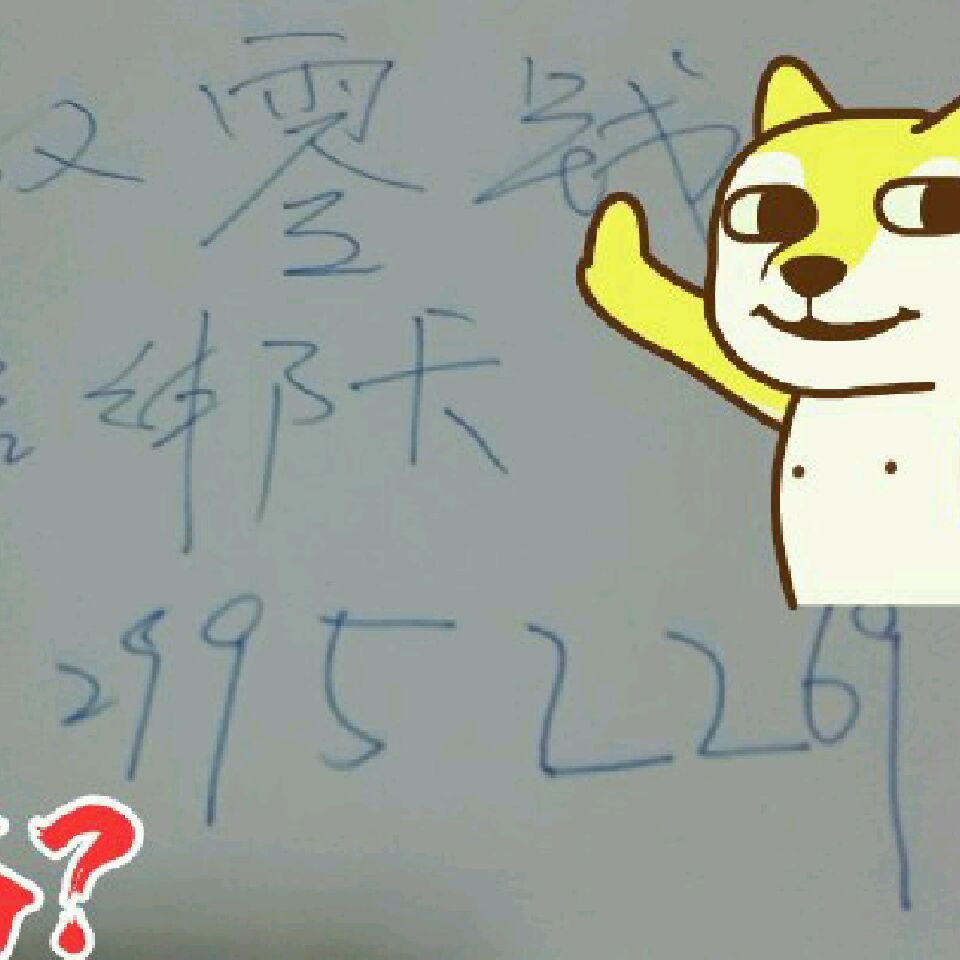 零钱
绑卡
29952269
?